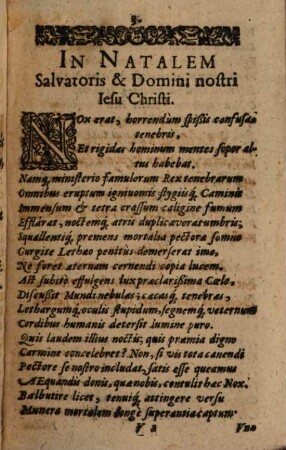 3.
IN NATALEM
Salvatoris & Domini nostri
Iesu Christi.
NOx erat, horrendùm spißis confusa
tenebris,
Et rigidas hominum mentes sopor al-
tus habebat.
Namq; ministerio famulorum Rex tenebrarum
Omnibus eruptum ignivomis stygiisq; Caminis
Immensum & tetra crassum caligine fumum
Efflarat, noctemq; atris duplicaverat umbris;
Squallentiq; premens mortalia pectora somno
Gurgite Lethæo penitus demerserat imo,
Ne foret æternam cernendi copia lucem.
Ast subitò effulgens lux præclarißima Cœlo,
Discußit Mundi nebulas; cæcasq; tenebras,
Lethargumq; oculis stupidum, segnemq; veternum
Cordibus humanis detersit lumine puro.
Quis laudem illius noctis; quis præmia digno
Carmine concelebret? Non, si vis tota canendi
Pectore se nostro includat, satis esse queamus
AEquandis donis, quæ nobis, contulit hæc Nox.
Balbutire licet, tenuiq; attingere versu
Munera mortalem longè superantia captum
V 2
Vno